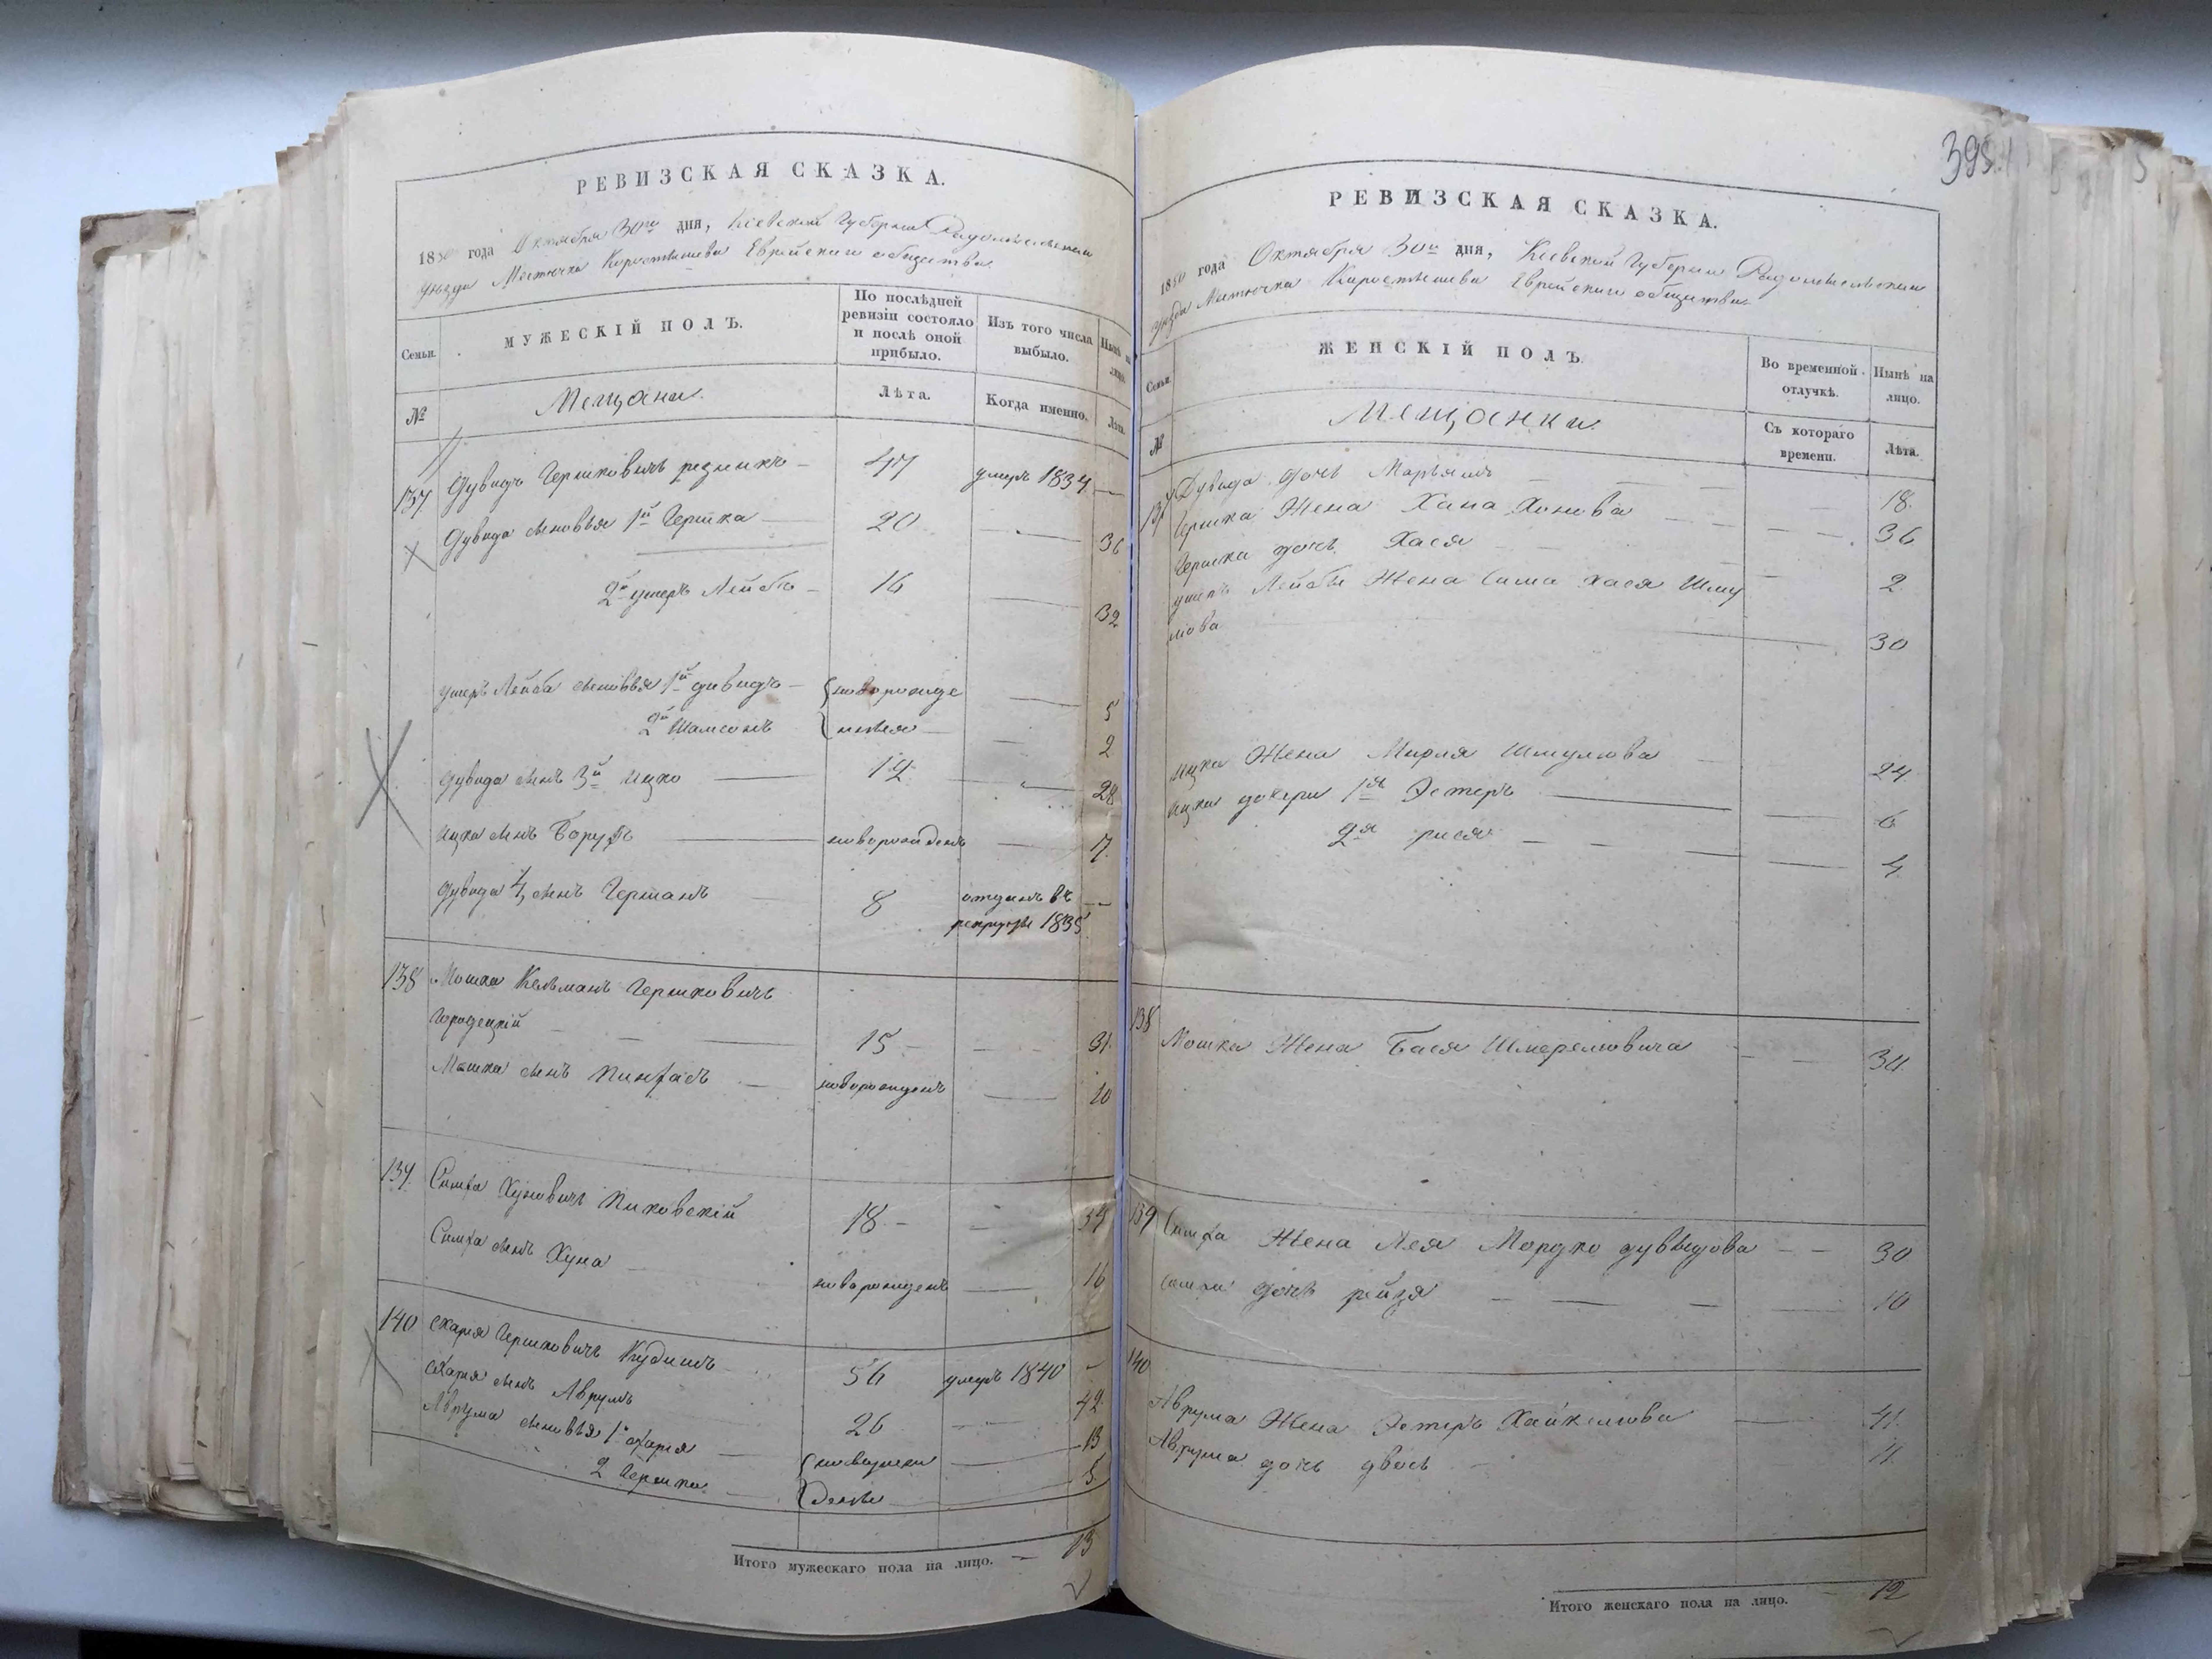 РЕВИЗСКАЯ СКАЗКА.
1850 года Октября 30го дня, Кіевской Губерніи Радомысльскаго
уѣзда Мѣстечка Коростышева Еврейскаго общества
Семьи.
МУЖЕСКІЙ ПОЛЪ.
По послѣдней ревизіи состояло и послѣ оной прибыло.
Изъ того числа выбыло.
Нынѣ на лицо.
№
Мещана.
Лѣта.
Когда именно.
Лѣта.
137 Дувидъ Гершковичъ резникъ 47 умеръ 1834
Дувида сыновья 1й Гершка 20 36
2й ушеръ Лейбъ 16 32
ушеръ Лейба сыновья 1й дивидъ новорожде 5
2й Шамсонъ нные 2
Дувида сынъ 3й ицко 12 28
ицка сынъ Борухъ новорожденъ 7
дувида 4 сынъ Германъ 8 отданъ въ
рекруты 1835
138 Мошка Кельманъ Гершковичъ
Городецкій 15 31
Мошка сынъ Пинхасъ новорожденъ 10
139 Симха Хуновичъ Пиковскій 18 34
Симха сынъ Хуна новорожденъ 16
140 схарія Гершковичъ Кудишъ 56 умеръ 1840
схарія сынъ Аврумъ 26 42
Аврума сыновья 1й схарія 13
2 Гершка 5
Итого мужескаго пола на лицо. 13
395
РЕВИЗСКАЯ СКАЗКА.
1850 года Октября 30го дня, Кіевской Губерніи Радомысльскаго
уѣзда Мѣстечка Коростышева Еврейскаго общества
Семьи.
ЖЕНСКІЙ ПОЛЪ.
Во временной отлучкѣ.
Нынѣ на лицо.
№
Мещанки.
Съ котораго времени.
Лѣта.
137 Дувида дочь Марьямъ 18
Гершка Жена Хана Хонова 36
Гершка дочь Хася 2
ушеръ Лейбы Жена Сима Хася Шму
лова 30
ицка Жена Мирля Шмулова 24
ицки дочери 1я Эстеръ 6
2я рися 4
138 Мошка Жена Бася Шмерелювича 34
139 Симха Жена Лея Мордко дувыдова 30
симхи дочь рейзя 10
140
Аврума Жена Эстеръ Хайкелюва 41
Аврума дочь двося 11
Итого женскаго пола на лицо. 12